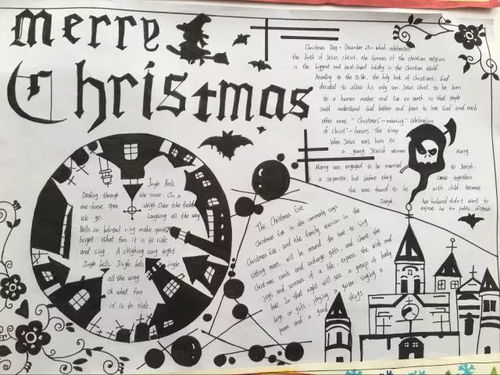 Merry
Christmas
Christmas Day - December 25 - which celebrates
the birth of Jesus Christ, the founder of the christian religion,
is the biggest and best-loved holiday in the Christian world.
According to the Bible, the holy book of christians, God
decided to allow his only son Jesus Christ, to be born
to a human mother and live on earth so that people
could understand God better and learn to love God and each
other more. "Christmas" - meaning "celebration
of Christ" - honors the time
When Jesus was born to
a young Jewish woman Mary.
Marry was engaged to be married to Joseph,
a carpenter, but before they came together
she was found to be with child because
Joseph her husband didn't want to
expose her to public disgrace
Jingle Bells
Dashing through the snow. On a
one-horse open sleigh Over the fields
we go. Laughing all the way
Bells on bob-tail ring make spirit
bright What fun it is to ride
and sing A sleighing song tonight
Jingle bells Jingle bells Jingle
all the way
Oh what fun
it is to ride
The Christmas Eve
Christmas Eve is also commonly
Christmas Eve and the family in the
sitting room, will be around the tree to sing
Christmas carols and exchange gifts, and share the
joys and sorrows of a life, express the wish and
love. In that night will see a group of
boys or girls, playing a guitar singing a